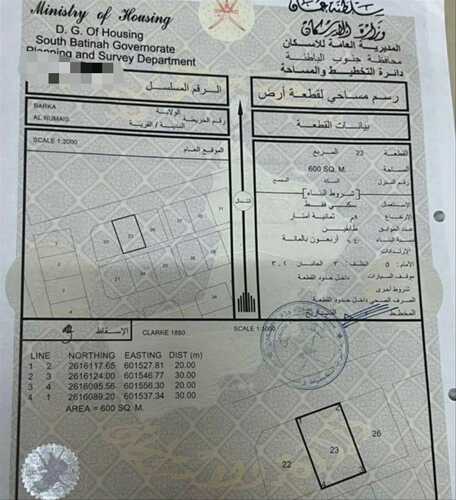 Ministry of Housing
D. G. Of Housing
South Batinah Governorate
Planning and Survey Department
سلطنة عمان
وزارة الإسكان
المديرية العامة للاسكان
محافظة جنوب الباطنة
دائرة التخطيط والمساحة
الرقم المسلسل
رسم مساحي لقطعة أرض
BARKA
الولاية
AL RUMAIS
رقم الخريطة
المدينة / القرية
بيانات القطعة
SCALE 1:2000
الموقع العام
القطعة 23 المربع
المساحة 600 SQ. M.
رقم المنزل السكة المجمع
شروط البناء
الاستعمال سكني فقط
الارتفاع ٨م ثمانية أمتار
عدد الطوابق طابقين
نسبة البناء ٤٠٪ أربعون بالمائة
الارتدادات
الأمام: ٥ الخلف: ٣ الجانبان ٣،٣
موقف السيارات داخل حدود القطعة
شروط أخرى
الصرف الصحي داخل حدود القطعة
المخطط التاريخ
الشمال
23
22
26
الإسقاط
CLARKE 1880
SCALE 1:1000
LINE NORTHING EASTING DIST (m)
1 2 2616117.65 601527.81 20.00
2 3 2616124.00 601546.77 30.00
3 4 2616095.56 601556.30 20.00
4 1 2616089.20 601537.34 30.00
AREA = 600 SQ. M.
1
2
3
4
22
23
26